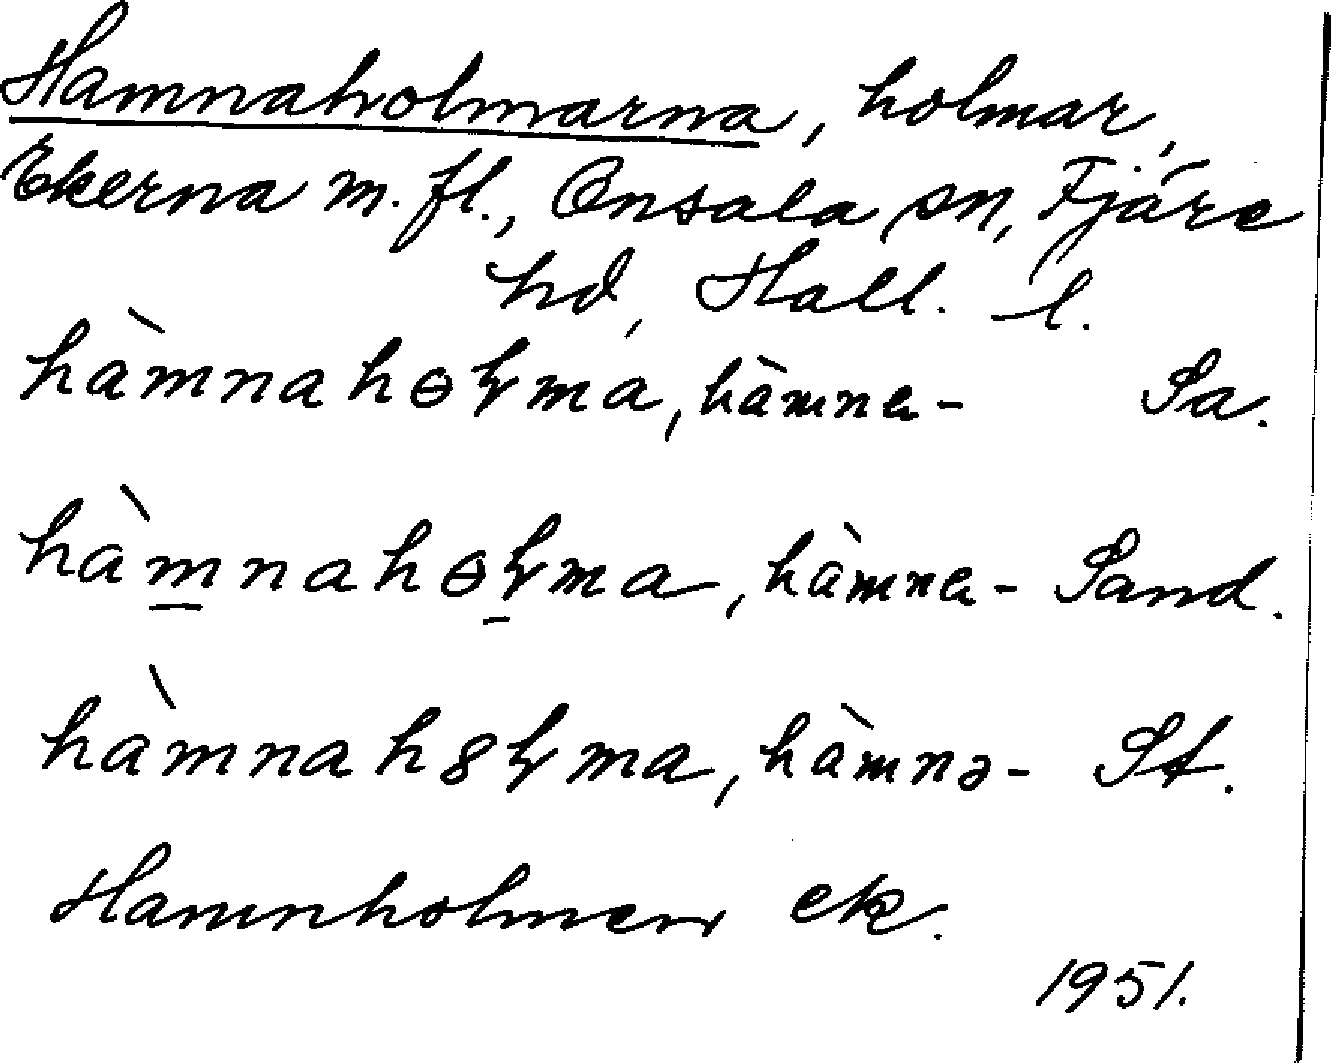 Hamnaholmarna, holmar,
Ekerna m. fl., Onsala sn, Fjäre
hd, Hall. l.
hàmnahɵɫma, hàmna- Sa.
hàmnahɵɫma, hàmna- Sand.
hàmnah8ɫma, hàmnə- St.
Hamnholmen ek.
1951.